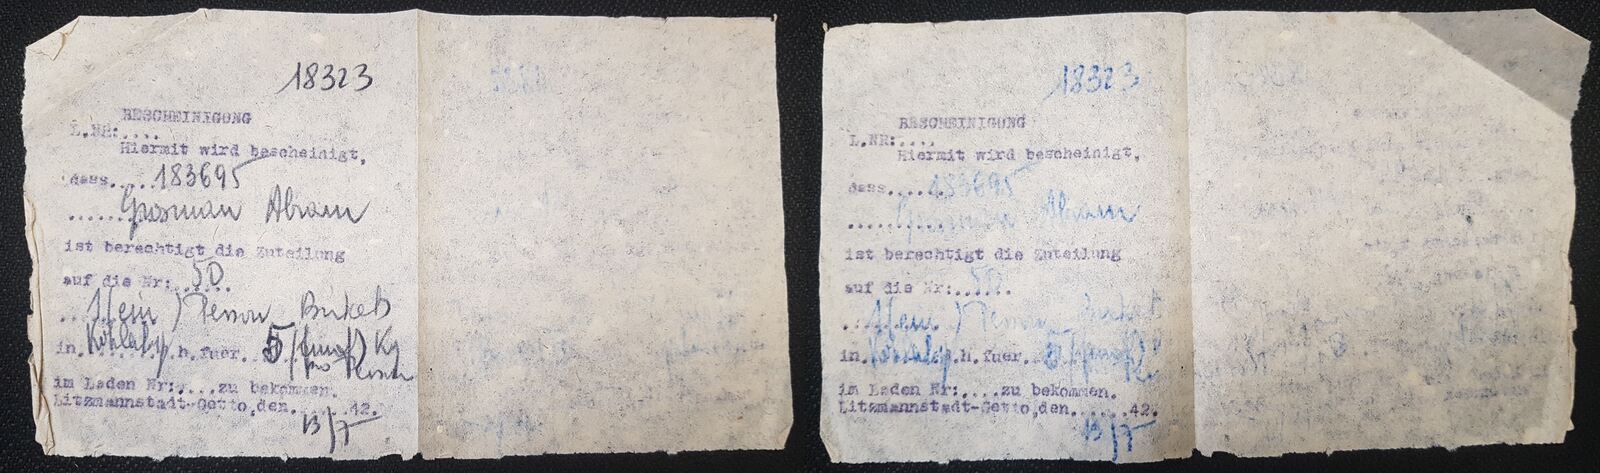 18323
BESCHEINIGUNG
L.NR:....
Hiermit wird bescheinigt,
dass.....183695
......Grosman Abram
ist berechtigt die Zuteilung
auf die Nr:..50....
...1(ein) Person Briket
in..........h.fuer..5/(fuenf) Kg
pro Person
im Laden Nr:....zu bekommen.
Litzmannstadt-Getto,den......42.
13/7
18323
BESCHEINIGUNG
L.NR:....
Hiermit wird bescheinigt,
dass.....183695
Grosman Abram
ist berechtigt die Zuteilung
auf die Nr:..50....
1(ein) Person Briket
in..........h.fuer..5/(fuenf)
im Laden Nr:....zu bekommen.
Litzmannstadt-Getto,den......42.
13/7